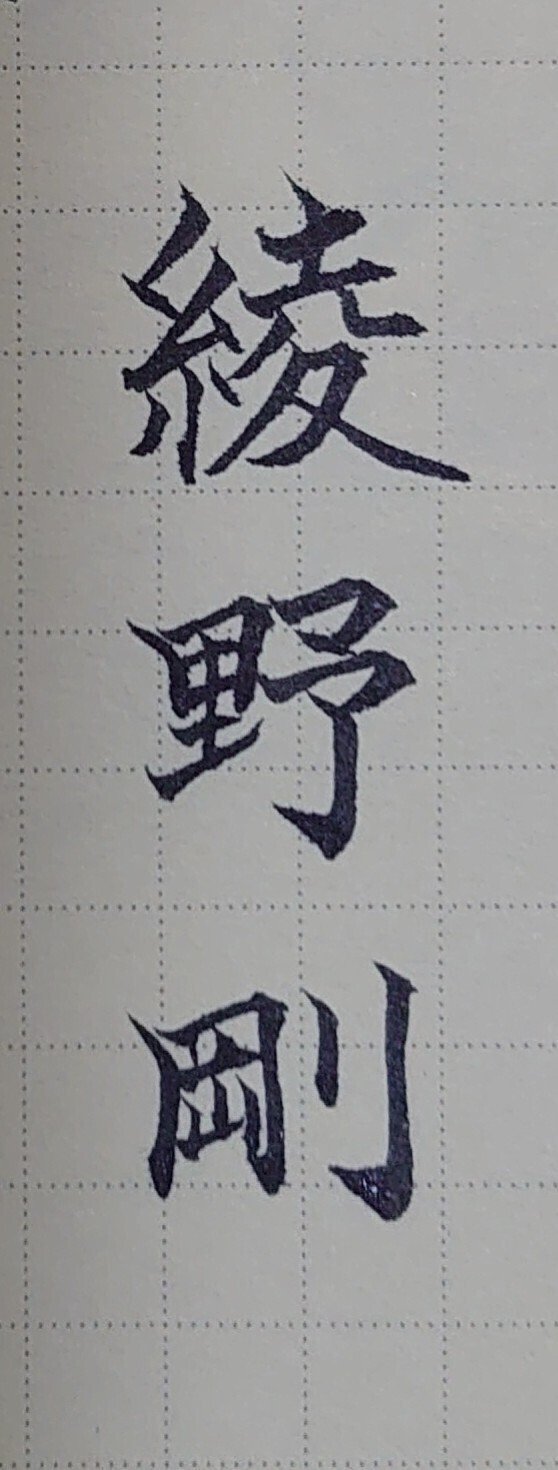 綾野剛